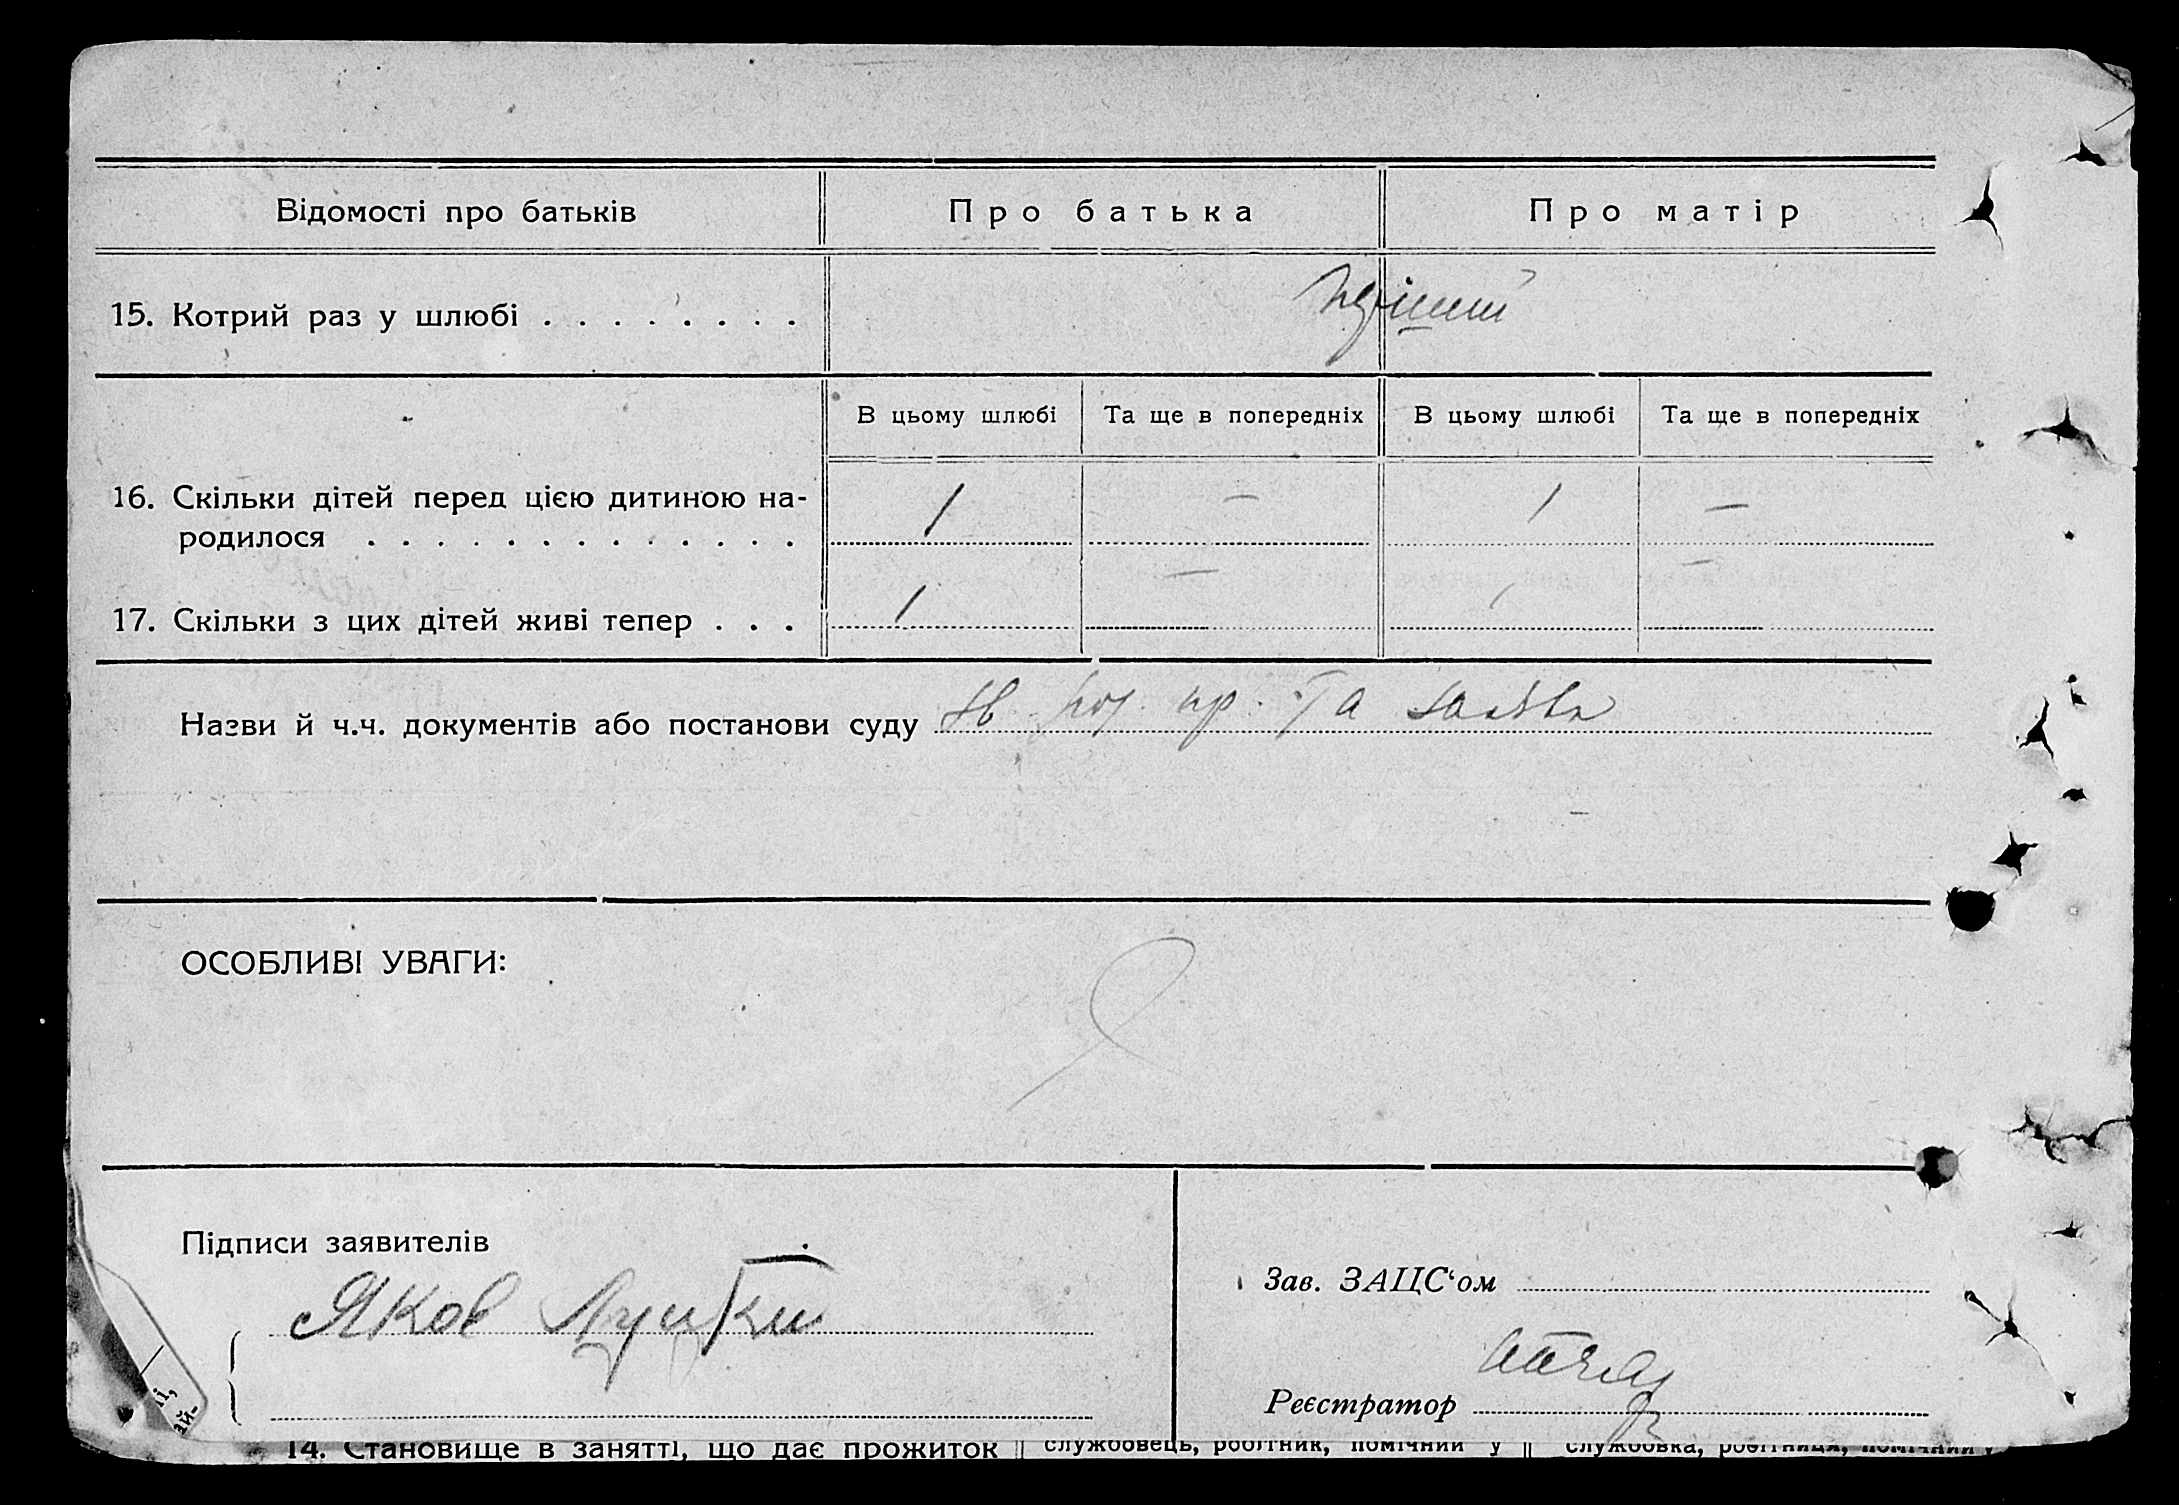 Відомості про батьків
Про батька
Про матір
15. Котрий раз у шлюбі . . . . . . . .
В цьому шлюбі
Та ще в попередніх
В цьому шлюбі
Та ще в попередніх
16. Скільки дітей перед цією дитиною на-
родилося . . . . . . . . . . . . .
1 — 1 —
17. Скільки з цих дітей живі тепер . . .
1 — 1 —
Назви й ч.ч. документів або постанови суду
пр. та
ОСОБЛИВІ УВАГИ:
Підписи заявителів
Яков
Зав. ЗАЦС‘ом
Реєстратор
і,
ай-
14. Становище в занятті, що дає прожиток
службовець, робітник, помічний у
службовка, робітниця, помічний у